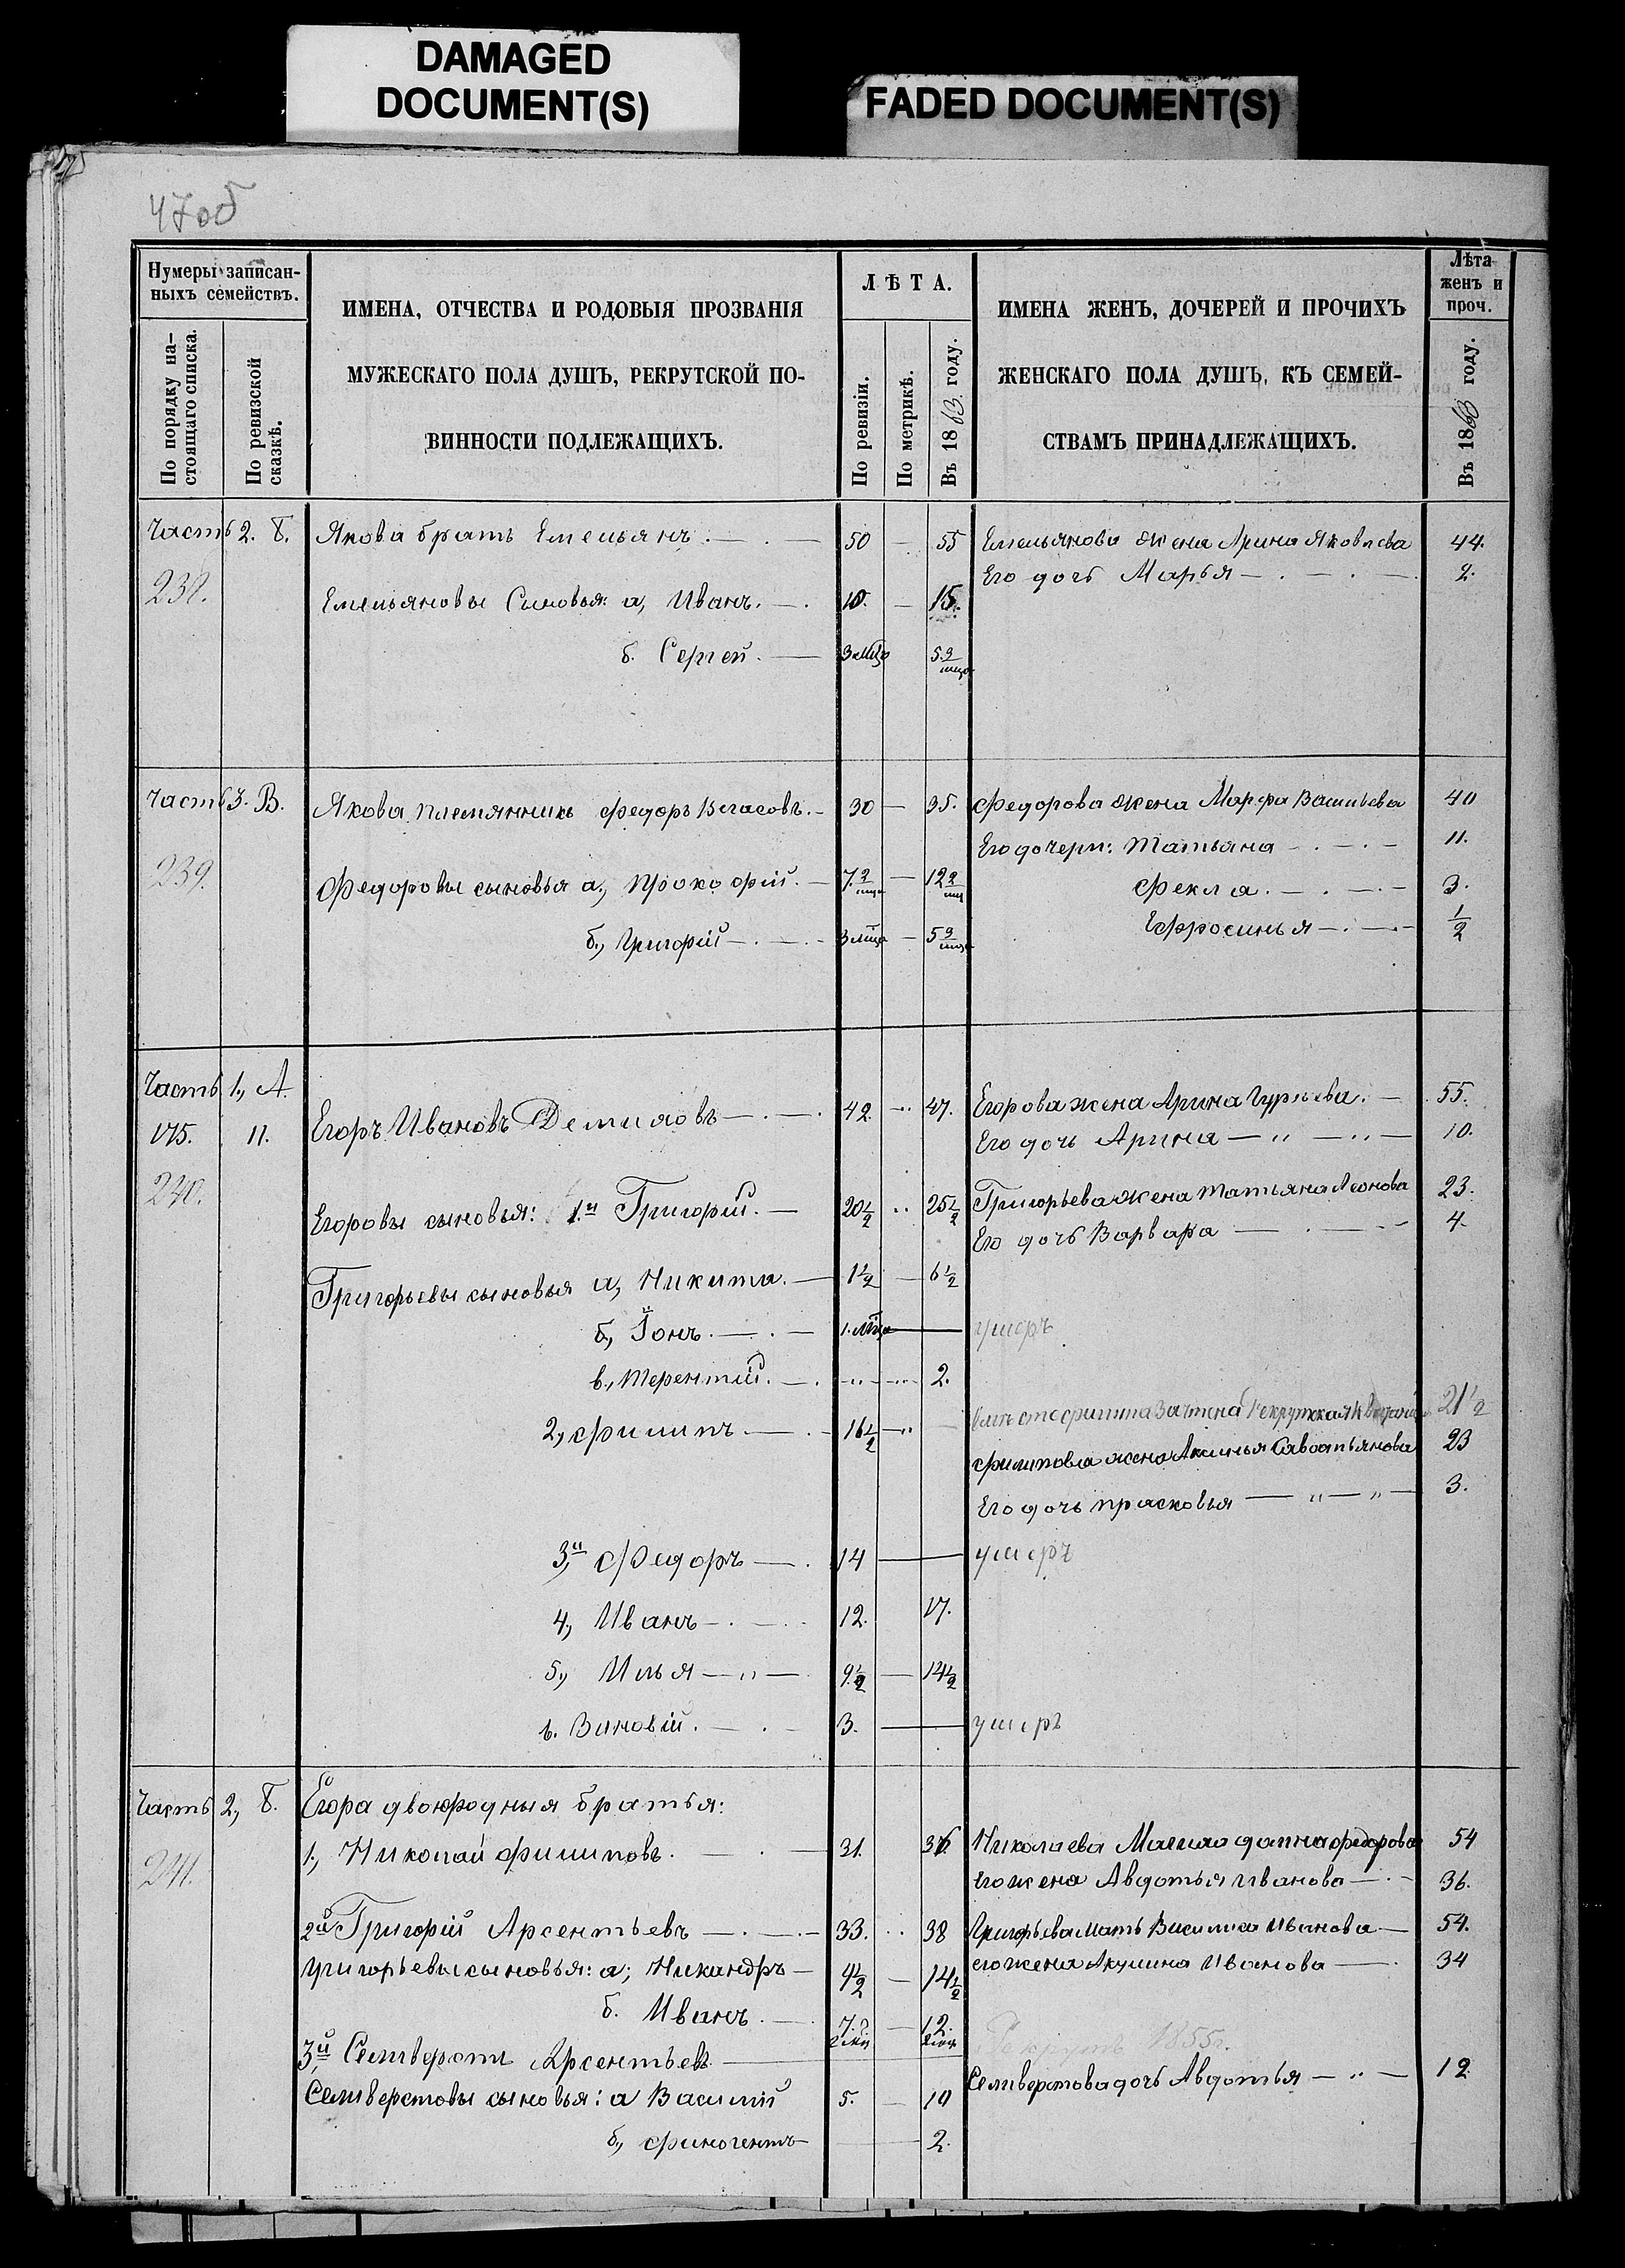 DAMAGED
DOCUMENT(S)
FADED DOCUMENT(S)
47об
Нумеры записан-
ныхъ семействъ.
По порядку на-
стоящаго списка.
По ревизской
сказкѣ.
ИМЕНА, ОТЧЕСТВА И РОДОВЫЯ ПРОЗВАНІЯ
МУЖЕСКАГО ПОЛА ДУШЪ, РЕКРУТСКОЙ ПО-
ВИННОСТИ ПОДЛЕЖАЩИХЪ.
ЛѢТА.
По ревизіи.
По метрикѣ.
Въ 1863. году.
ИМЕНА ЖЕНЪ, ДОЧЕРЕЙ И ПРОЧИХЪ
ЖЕНСКАГО ПОЛА ДУШЪ, КЪ СЕМЕЙ-
СТВАМЪ ПРИНАДЛЕЖАЩИХЪ.
Лѣта
женъ и
проч.
Въ 1863 году.
Часть 2. Б. Якова братъ Емельянъ. — 50 — 55 Емельянова жена Арина Яковлева 44.
Его дочь Марья — . — . — 2.
238. Емельяновы Сыновья: а, Иванъ. — 10. — 15.
б. Сергей. — 3 мца 5 3/мца
Часть 3. В. Якова племянникъ Федоръ Власовъ. — 30 — 35. Федорова жена Марфа Васильева 40
Его дочери: Татьяна — . — . — 11.
239. Федоровы сыновья а., Прокофій. — 7. 2/мца — 12 2/мца Фекла. — . — . — 3.
б., Григорій — . — . — 3 мца — 5 3/мца Ефросинья — . — . — 1/2
Часть 1., А.
175. 11. Егоръ Ивановъ Демидовъ — . — . 42. .. 47. Егорова жена Арина Гурьева. — 55.
Его дочь Арина — „ — „ — 10.
240. Егоровы сыновья: 1.й Григорій. — 20 1/2 .. 25 1/2 Григорьева жена Татьяна Леонова 23.
Его дочь Варвара — . — . — 4.
Григорьевы сыновья а, Никита. — 1 1/2 — 6 1/2
б., Іонъ. — . — 1. мца — умеръ
в., Терентій. — . — 2.
2, Филипъ — . — 16 1/2 — „ — Филипа зачтена Рекрутская 21 1/2
Филипова жена Аксинья Савостьянова 23
Его дочь Прасковья — „ — „ — 3.
3,й Федоръ — . 14 — умеръ
4., Иванъ — . — 12. 17.
5., Илья — „ — 9 1/2 — 14 1/2
6. Зиновій. — . — 3. — умеръ
Часть 2., Б. Егора двоюродныя братья:
241. 1., Николай Филиповъ. — . — 31. 36. Николаева Мать Федорова 54
его жена Авдотья Иванова — . — 36.
2й Григорій Арсентьевъ — . — . — 33. .. 38 Григорьева мать Василиса Иванова — 54.
Григорьевы сыновья: а; Никандръ — 9 1/2 — 14 1/2 его жена Акулина Иванова — . 34
б. Иванъ. — . 7. — 12.
3й Селиверстъ Арсентьевъ — Рекрутъ 1855г.
Селиверстовы сыновья: а Василій 5. — 10 Селиверстова дочь Авдотья — „ — 12
б., Финогентъ — 2.